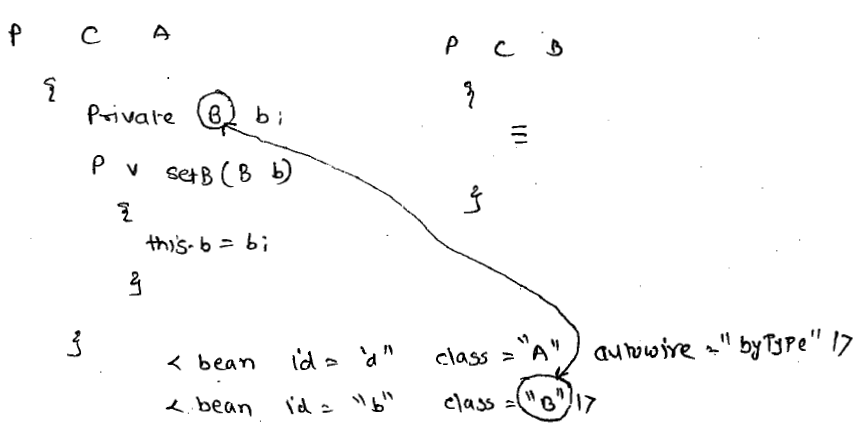 P C A
{
Private B b;
P v setB (B b)
{
this.b = b;
}
}
P C B
{
≡
}
< bean id = "a" class = "A" autowire = "byType" />
< bean id = "b" class = "B" />